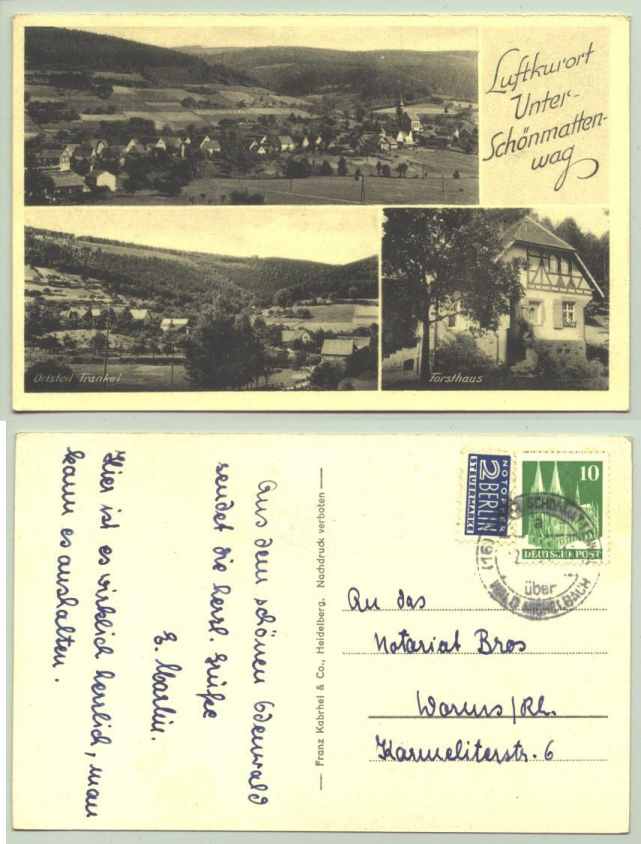 Luftkurort
Unter-
Schönmatten-
wag
Ortsteil Frankel
Forsthaus
Aus dem schönen Odenwald
sendet die herzl. Grüße
E. Martin.
Hier ist es wirklich herrlich, man
kann es aushalten.
— Franz Kabrhel & Co., Heidelberg. Nachdruck verboten —
NOTOPFER
2 BERLIN
STEUERMARKE
10
DEUTSCHE POST
(16)
über
WALD-MICHELBACH
An das
Notariat Bros
Worms/Rh.
Karmeliterstr. 6